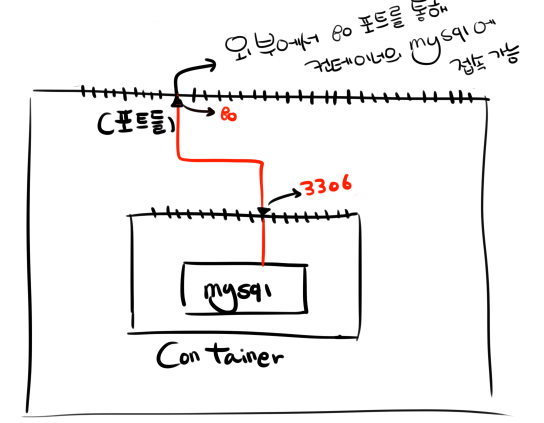 외부에서 80 포트를 통해
컨테이너의 mysql에
접속 가능
(포트들)
80
3306
mysql
Container